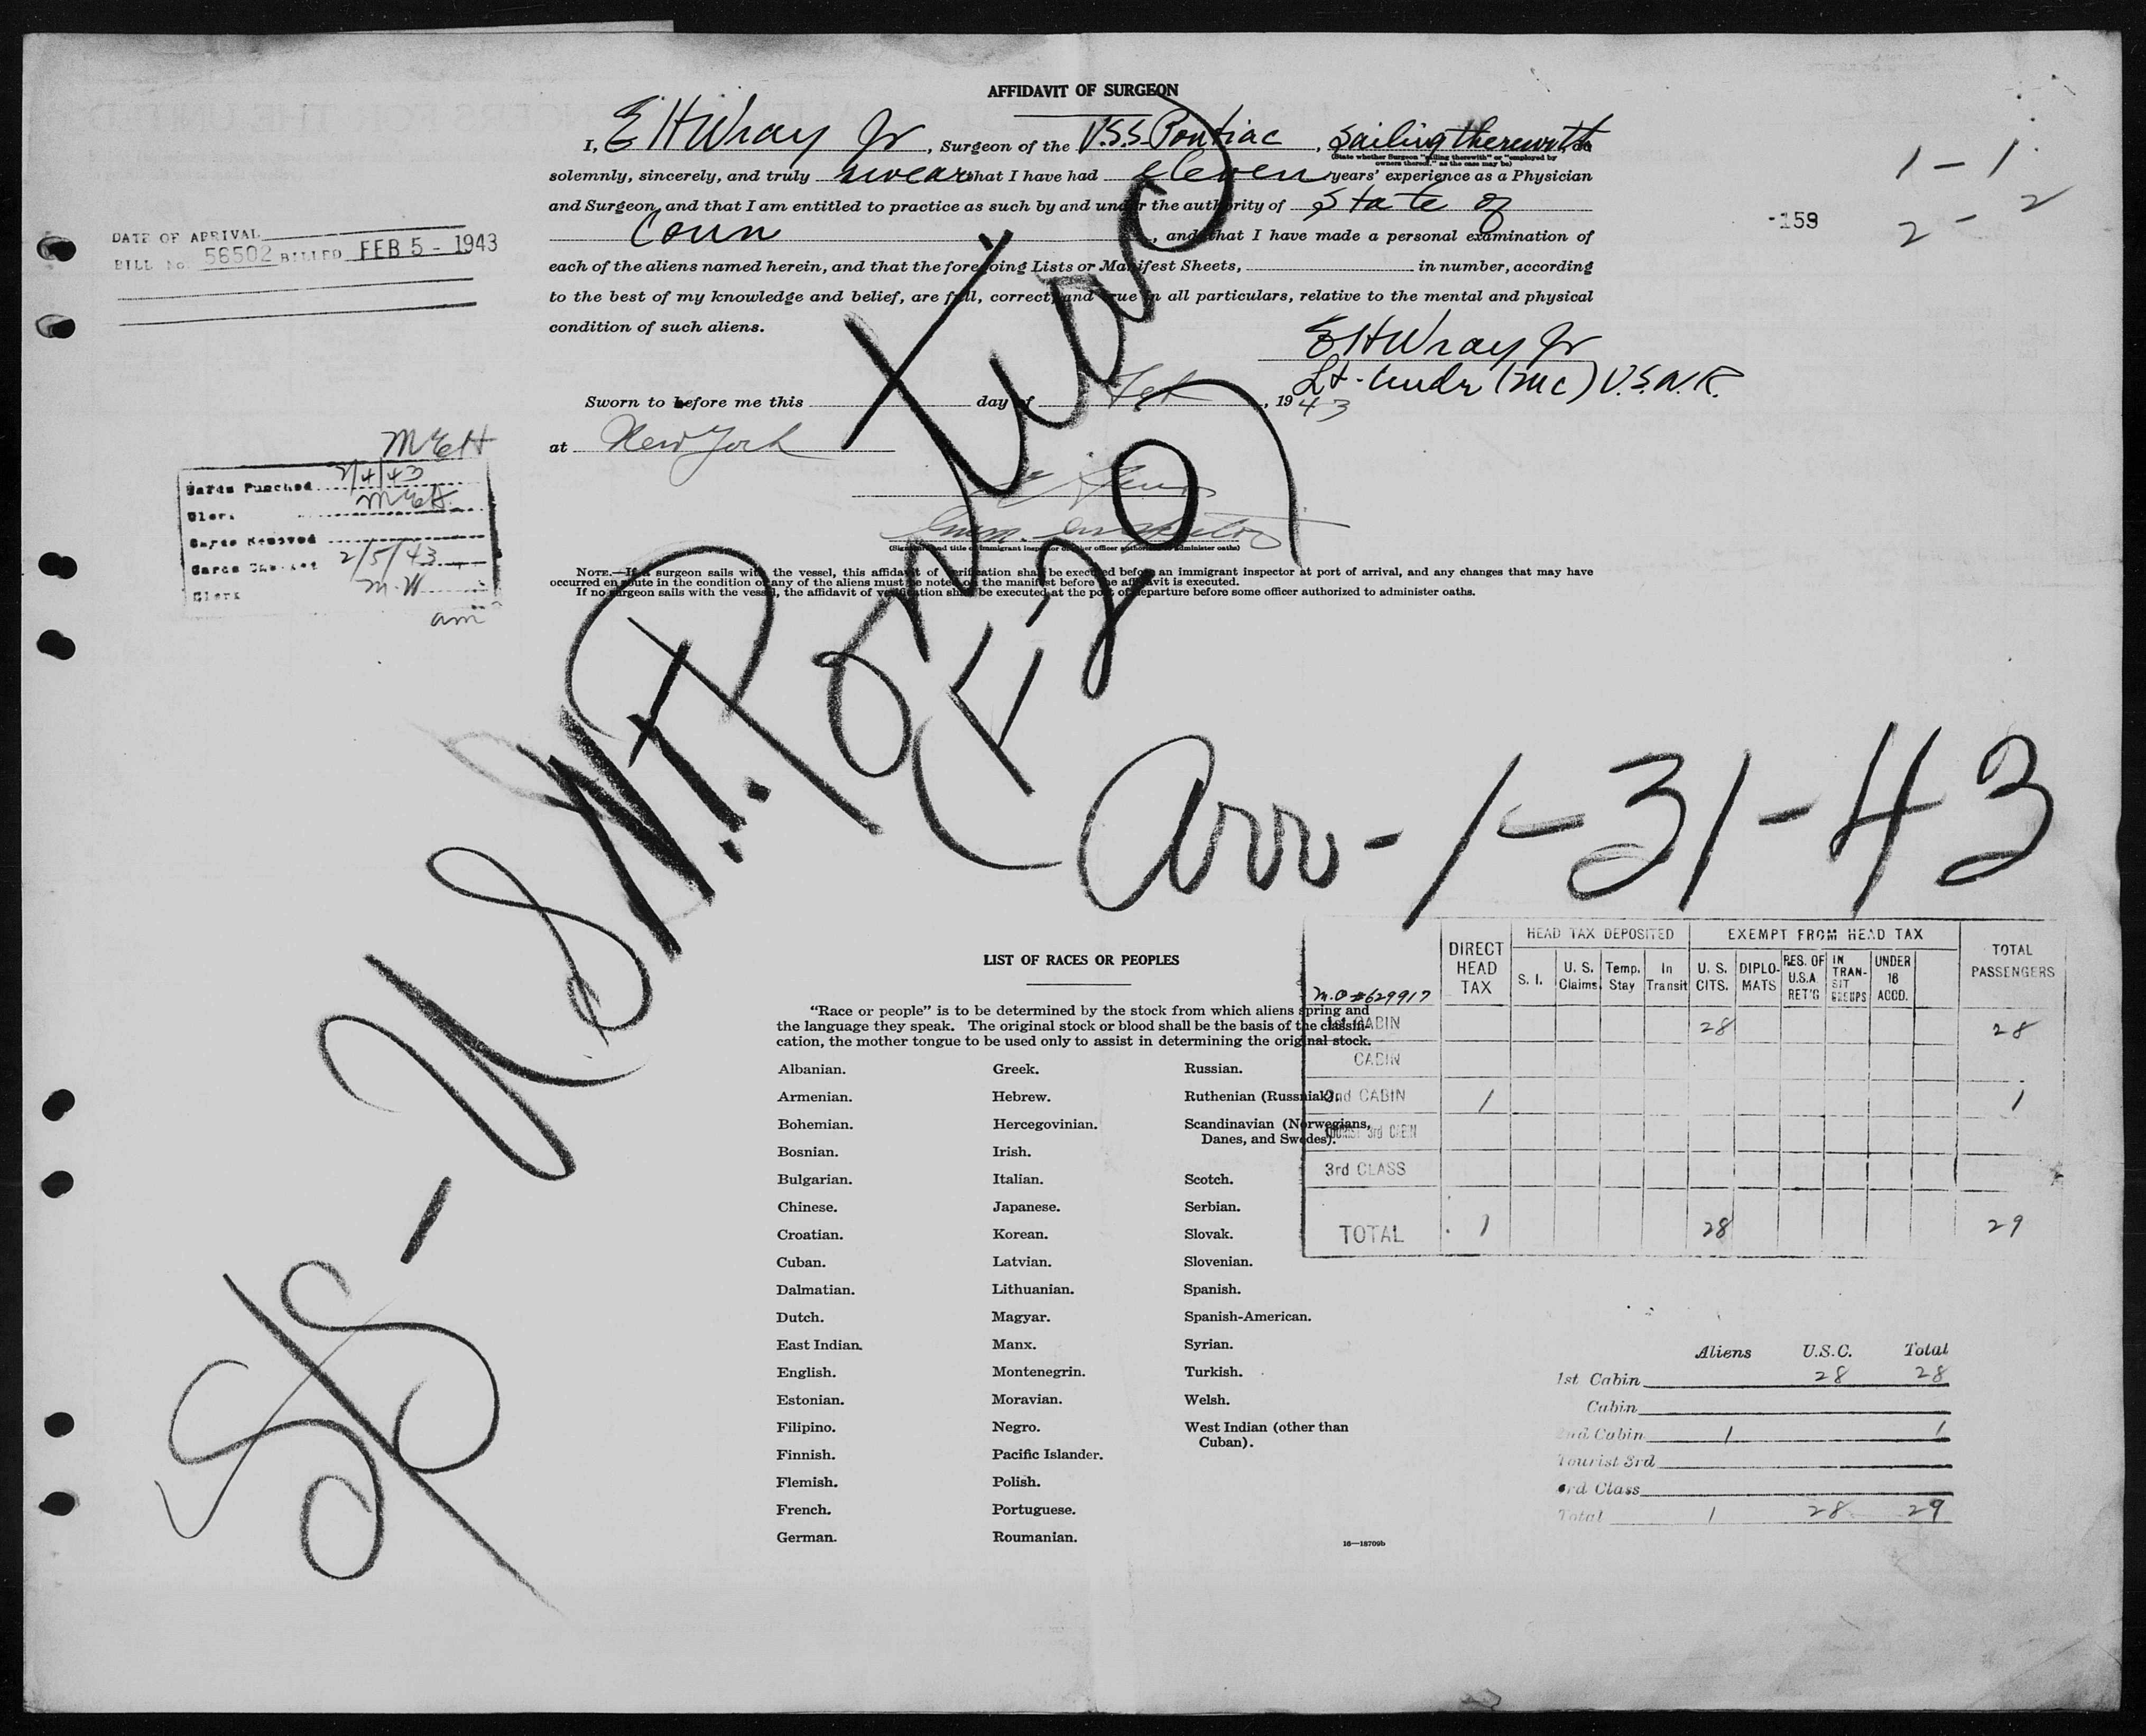 AFFIDAVIT OF SURGEON
I, E H Wray Jr, Surgeon of the U.S.S. Pontiac, sailing therewith, do
(State whether Surgeon "sailing therewith" or "employed by
owners thereof," as the case may be)
solemnly, sincerely, and truly swear that I have had eleven years' experience as a Physician
and Surgeon, and that I am entitled to practice as such by and under the authority of State of
Conn, and that I have made a personal examination of
each of the aliens named herein, and that the foregoing Lists or Manifest Sheets, in number, according
to the best of my knowledge and belief, are full, correct, and true in all particulars, relative to the mental and physical
condition of such aliens.
E H Wray Jr
Lt-Comdr (MC) U.S.N.R.
Sworn to before me this day of Feb, 1943
at New York
(Signature and title of immigrant inspector or other officer authorized to administer oaths)
NOTE.—If a surgeon sails with the vessel, this affidavit of verification shall be executed before an immigrant inspector at port of arrival, and any changes that may have
occurred en route in the condition of any of the aliens must be noted on the manifest before the affidavit is executed.
If no surgeon sails with the vessel, the affidavit of verification shall be executed at the port of departure before some officer authorized to administer oaths.
1 - 1
2 - 2
-159
DATE OF ARRIVAL
BILL No. 56502 BILLED FEB 5 - 1943
MEH
Cards Punched 2/4/43
Clerk MEH
Cards Removed
Cards Checked 2/5/43
Clerk M.W
am
S/S - U.S.A.T. Pontiac
(F-20)
Arr - 1-31-43
LIST OF RACES OR PEOPLES
"Race or people" is to be determined by the stock from which aliens spring and
the language they speak. The original stock or blood shall be the basis of the classifi-
cation, the mother tongue to be used only to assist in determining the original stock.
Albanian.
Armenian.
Bohemian.
Bosnian.
Bulgarian.
Chinese.
Croatian.
Cuban.
Dalmatian.
Dutch.
East Indian.
English.
Estonian.
Filipino.
Finnish.
Flemish.
French.
German.
Greek.
Hebrew.
Hercegovinian.
Irish.
Italian.
Japanese.
Korean.
Latvian.
Lithuanian.
Magyar.
Manx.
Montenegrin.
Moravian.
Negro.
Pacific Islander.
Polish.
Portuguese.
Roumanian.
Russian.
Ruthenian (Russniak).
Scandinavian (Norwegians,
Danes, and Swedes).
Scotch.
Serbian.
Slovak.
Slovenian.
Spanish.
Spanish-American.
Syrian.
Turkish.
Welsh.
West Indian (other than
Cuban).
16—18709b
DIRECT HEAD TAX
HEAD TAX DEPOSITED
EXEMPT FROM HEAD TAX
TOTAL PASSENGERS
S. I. U. S. Claims Temp. Stay In Transit U. S. CITS. DIPLO-MATS RES. OF U.S.A. RET'G IN TRAN-SIT GROUPS UNDER 16 ACCD.
M.O #629917
1st CABIN 28 28
CABIN
2nd CABIN 1 1
TOURIST 3rd CABIN
3rd CLASS
TOTAL 1 28 29
Aliens U.S.C. Total
1st Cabin 28 28
Cabin
2nd Cabin 1 1
Tourist 3rd
3rd Class
Total 1 28 29